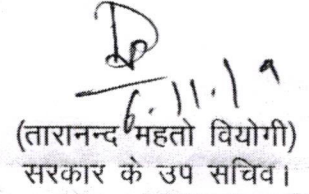 6.11.19
(तारानन्द महतो वियोगी)
सरकार के उप सचिव।